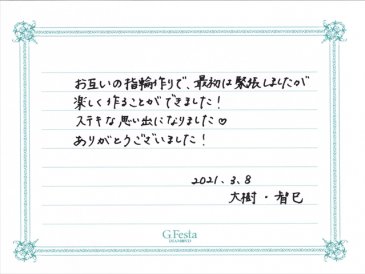 お互いの指輪作りで、最初は緊張しましたが
楽しく作ることができました!
ステキな思い出になりました♡
ありがとうございました!
2021.3.8
大樹・智巳
G.Festa